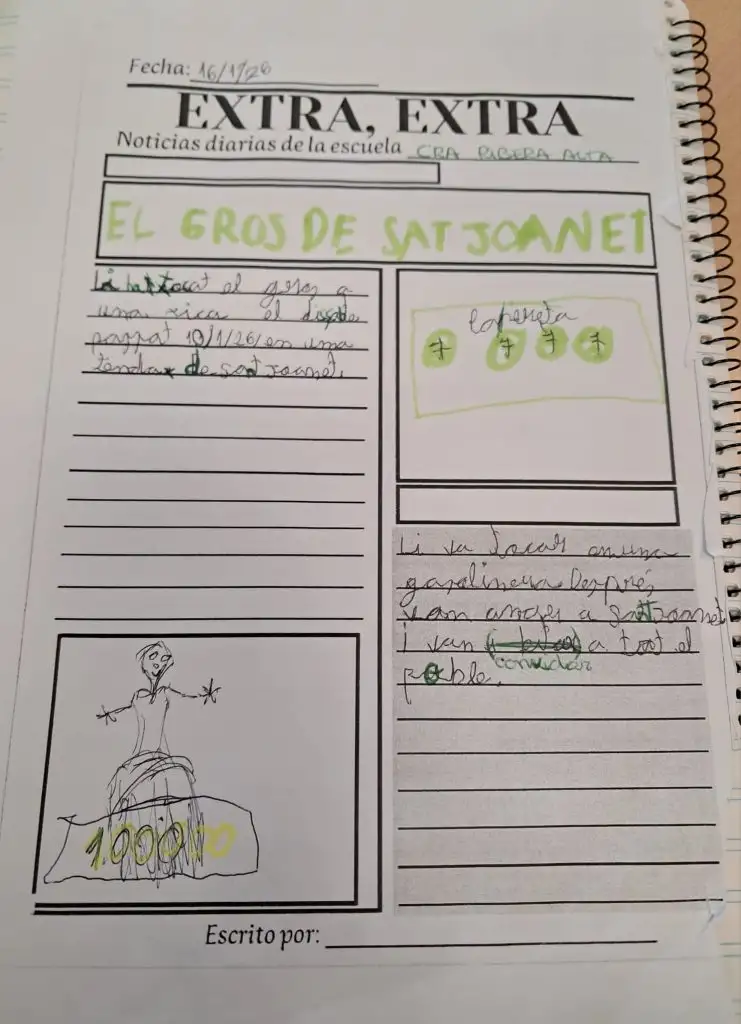 Fecha: 16/1/26
EXTRA, EXTRA
Noticias diarias de la escuela CRA RIBERA ALTA
EL GROS DE SAT JOANET
Li ha tocat el gros a
una rica el dissabte
passat 10/1/26 en una
tenda de sat joanet.
la pereta
7 7 7 7
Li va tocar en una
gasolinera Després
van anar a Sat Joanet
I van a tot el
convidar
poble.
100000
Escrito por: